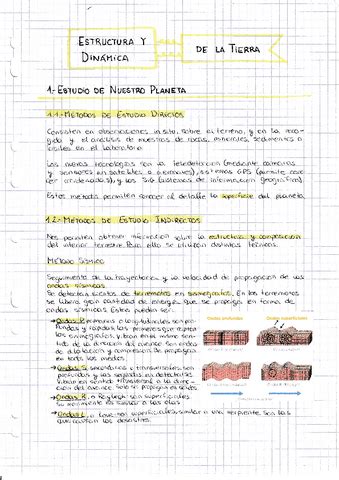 ESTRUCTURA Y DINÁMICA
DE LA TIERRA
1.-ESTUDIO DE NUESTRO PLANETA
1.1.-MÉTODOS DE ESTUDIO DIRECTOS
Consisten en observaciones in situ, sobre el terreno, y en la reco-
gida y el análisis de muestras de rocas, minerales, sedimentos o
fósiles en el laboratorio
Las nuevas tecnologías son la teledetección (mediante cámaras
y sensores en satélites o aviones), sistemas GPS (permite cono-
cer coordenadas), y los SIG (sistemas de información geográfica).
Estos métodos permiten conocer al detalle la superficie del planeta
1.2.-MÉTODOS DE ESTUDIO INDIRECTOS
Nos permiten obtener información sobre la estructura y composición
del interior terrestre. Para ello se utilizan distintas técnicas.
MÉTODO SÍSMICO
Seguimiento de la trayectoria y la velocidad de propagación de las
ondas sísmicas.
Se detectan a través de terremotos en sismógrafos. En los terremotos
se libera gran cantidad de energía que se propaga en forma de
ondas sísmicas. Estas pueden ser:
→Ondas P: primarias o longitudinales son pro-
fundas y rápidas, las primeras que registra
los sismógrafos, vibran en el mismo sen-
tido de la dirección del avance. Son ondas
de dilatación y compresión. Se propagan
en todos los medios.
→Ondas S: secundarias o transversales, son
profundas y las segundas en detectarse.
Vibran en sentido transversal a la direc-
ción del avance. Solo se propagan en sólidos
→Ondas R: o Rayleigh: son superficiales.
Su movimiento es similar a las olas
→Ondas L: o Love: son superficiales, similar a una serpiente. Son las
que causan los desastres.
Ondas profundas
Ondas superficiales